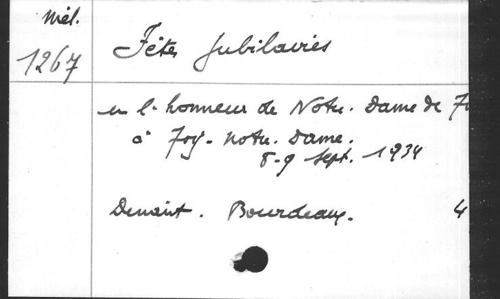 Mél.
1267
Fêtes Jubilaires
en l'honneur de Notre. Dame de
à Foy. Notre. Dame.
8-9 sept. 1934
Dinant. Bourdeaux. 4